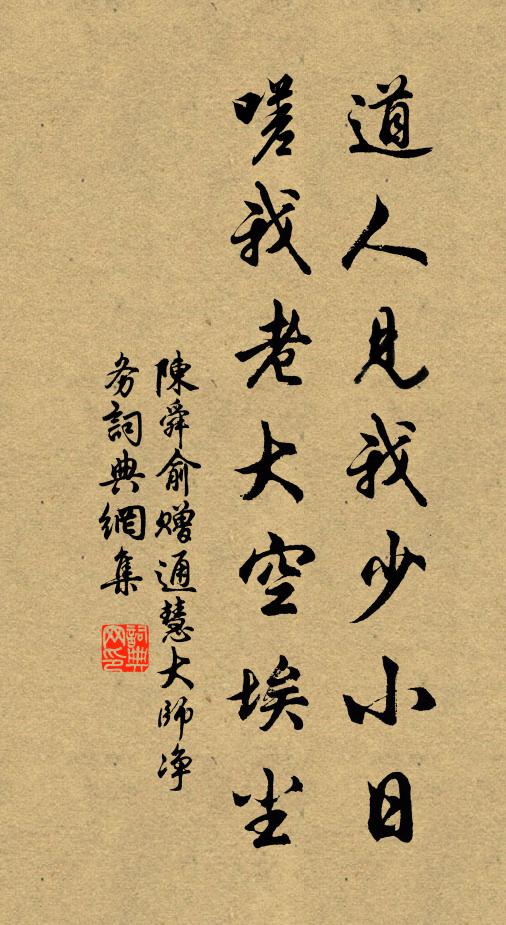 道人見我少小日
嗟我老大空埃尘
陳舜俞赠通慧大師净
务詞典網集
詞典
网印